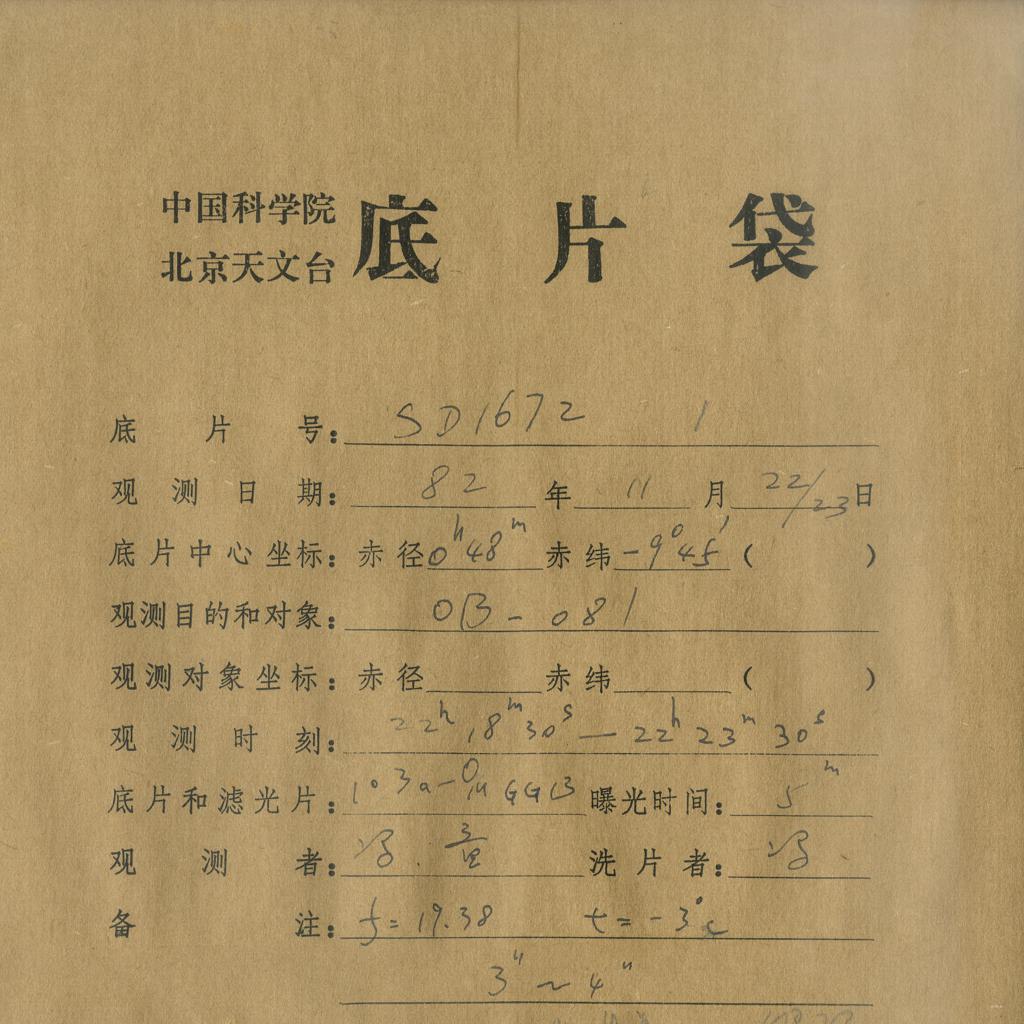 中国科学院
北京天文台
底片袋
底片号： SD1672 1
观测日期： 82 年 11 月 22/23 日
底片中心坐标：赤径 0h48m 赤纬 -9°45′ ( )
观测目的和对象： OB-081
观测对象坐标：赤径 赤纬 ( )
观测时刻： 22h 18m 30s — 22h 23m 30s
底片和滤光片： 103a-O, GG13 曝光时间： 5m
观测者： 冯 洗片者： 冯
备注： f=19.38 t=-3°c
3″~4″